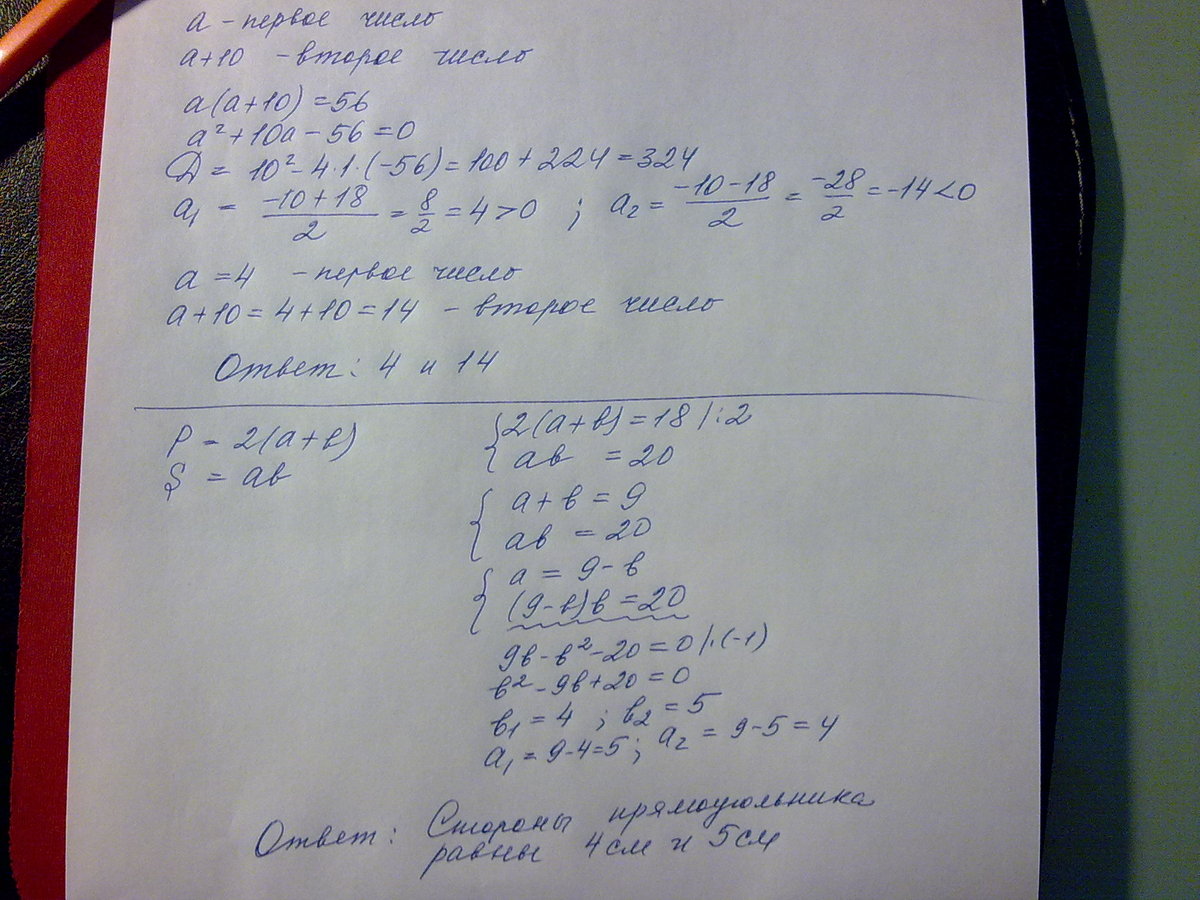 а - первое число
а+10 - второе число
а(а+10) = 56
а²+10а - 56 = 0
D = 10² - 4·1·(-56) = 100 + 224 = 324
а₁ = (-10+18)/2 = 8/2 = 4 > 0 ; а₂ = (-10-18)/2 = -28/2 = -14 < 0
а = 4 - первое число
а+10 = 4+10 = 14 - второе число
Ответ: 4 и 14
P = 2(а+в)
S = ав
{ 2(а+в) = 18 |:2
ав = 20
{ а+в = 9
ав = 20
{ а = 9-в
(9-в)в = 20
9в - в² - 20 = 0 |·(-1)
в² - 9в + 20 = 0
в₁ = 4 ; в₂ = 5
а₁ = 9-4=5 ; а₂ = 9-5 = 4
Ответ: Стороны прямоугольника
равны 4см и 5см